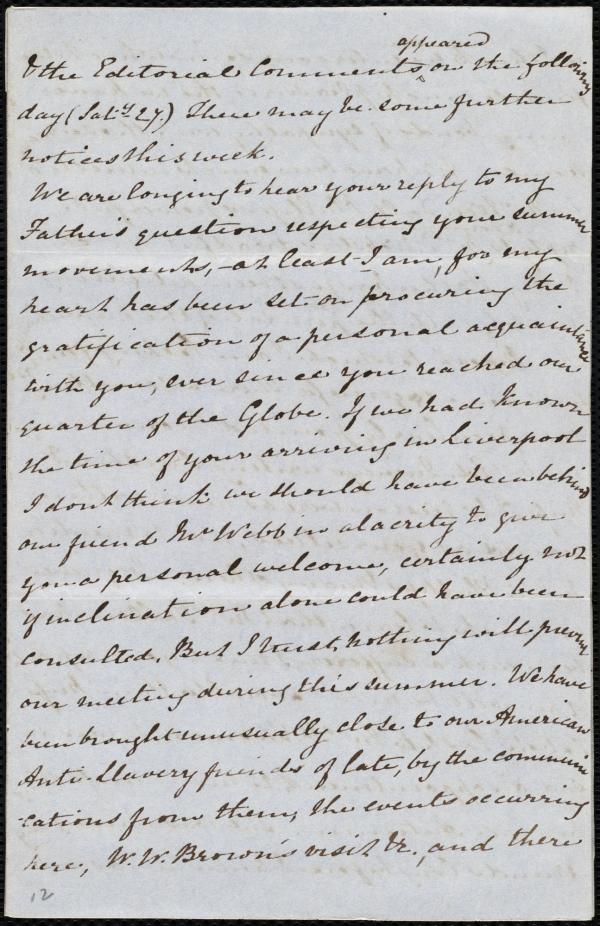 appeared
& the Editorial Comments ^ on the following
day (Sat.y 27.) There may be some further
notices this week.
We are longing to hear your reply to my
Father's question respecting your summer
movements, - at least I am, for my
heart has been set on procuring the
gratification of a personal acquaintance
with you, ever since you reached our
quarter of the Globe. If we had known
the time of your arriving in Liverpool
I dont think we should have been behind
our friend Mr Webb in alacrity to give
you a personal welcome, certainly not
if inclination alone could have been
consulted. But I trust nothing will prevent
our meeting during this summer. We have
been brought unusually close to our American
Anti-Slavery friends of late, by the communi
-cations from them, the events occurring
here, W. W. Brown's visit &c., and there
12